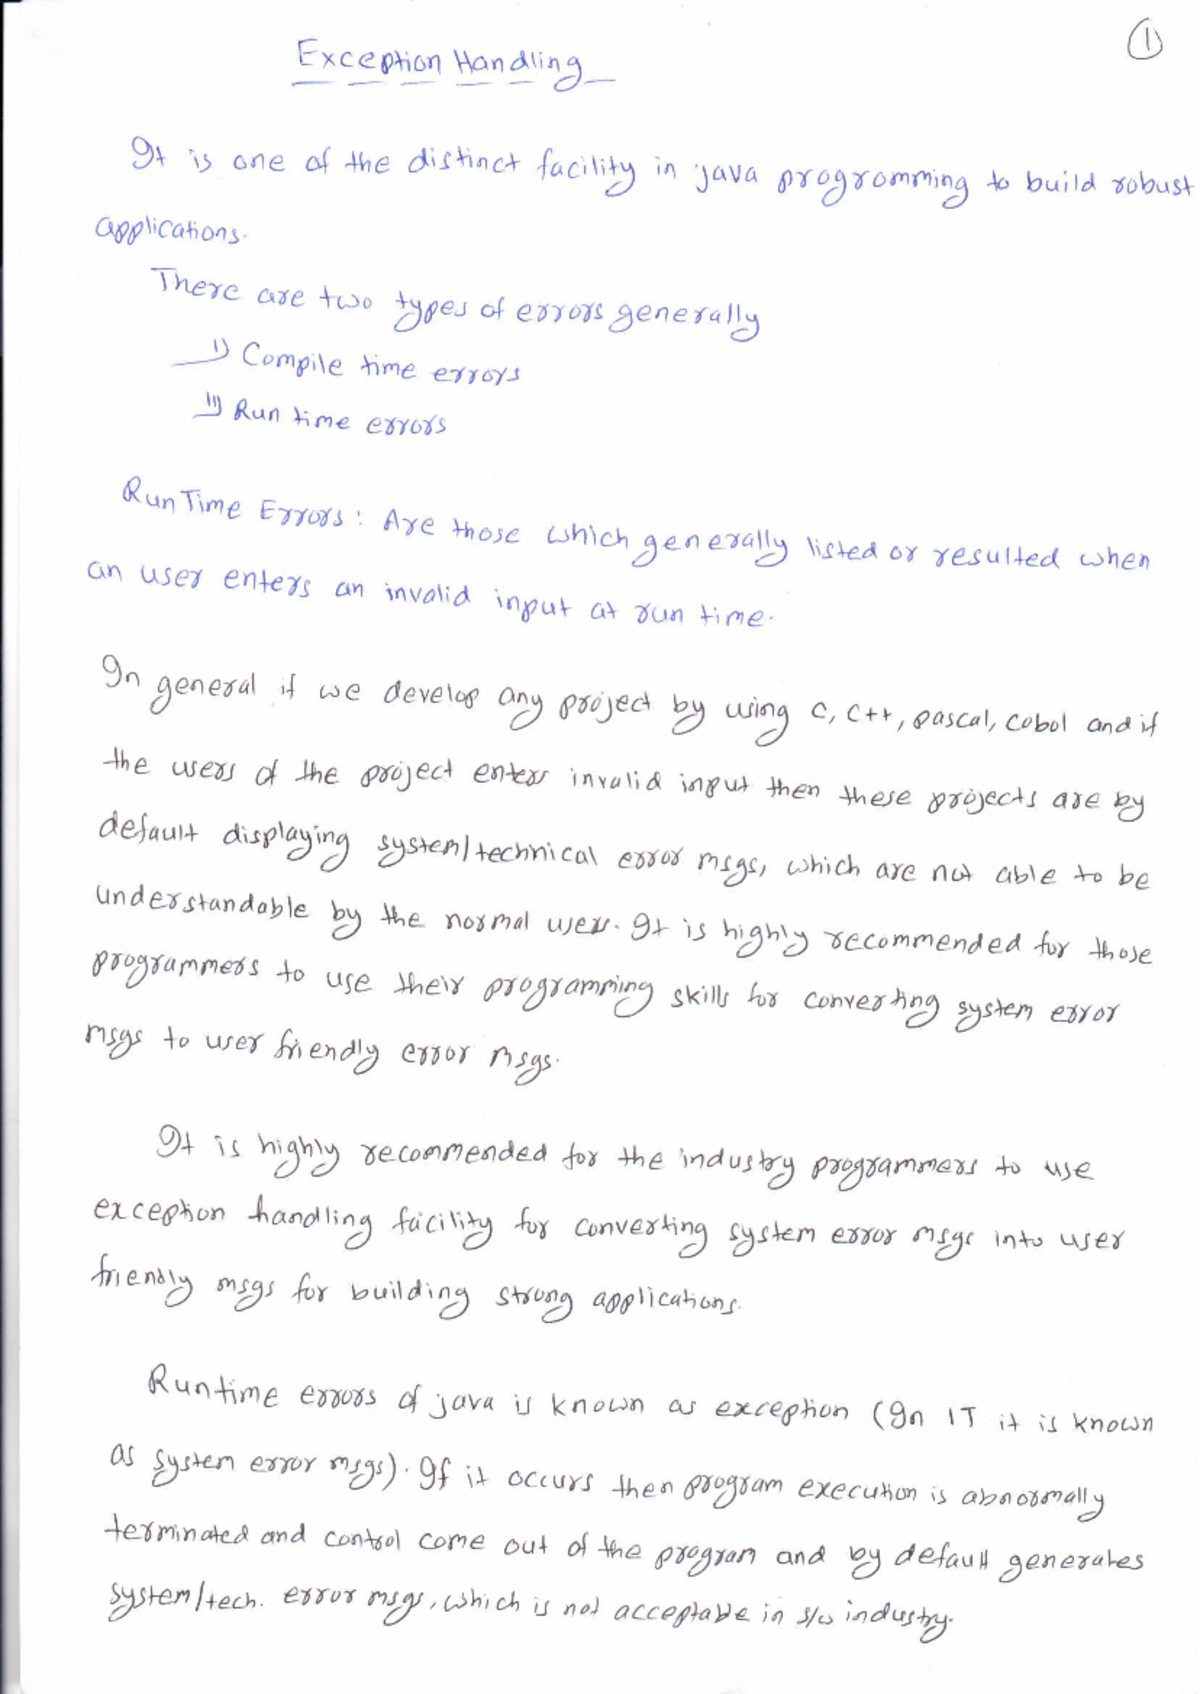 1
Exception Handling
It is one of the distinct facility in java programming to build robust
applications.
There are two types of errors generally
i) Compile time errors
ii) Run time errors
RunTime Errors: Are those which generally listed or resulted when
an user enters an invalid input at run time.
In general if we develop any project by using C, C++, pascal, cobol and if
the users of the project enters invalid input then these projects are by
default displaying system/technical error msgs, which are not able to be
understandable by the normal users. It is highly recommended for those
programmers to use their programming skills for converting system error
msgs to user friendly error msgs.
It is highly recommended for the industry programmers to use
exception handling facility for converting system error msgs into user
friendly msgs for building strong applications.
Runtime errors of java is known as exception (In IT it is known
as system error msgs). If it occurs then program execution is abnormally
terminated and control come out of the program and by default generates
system/tech. error msgs, which is not acceptable in s/w industry.